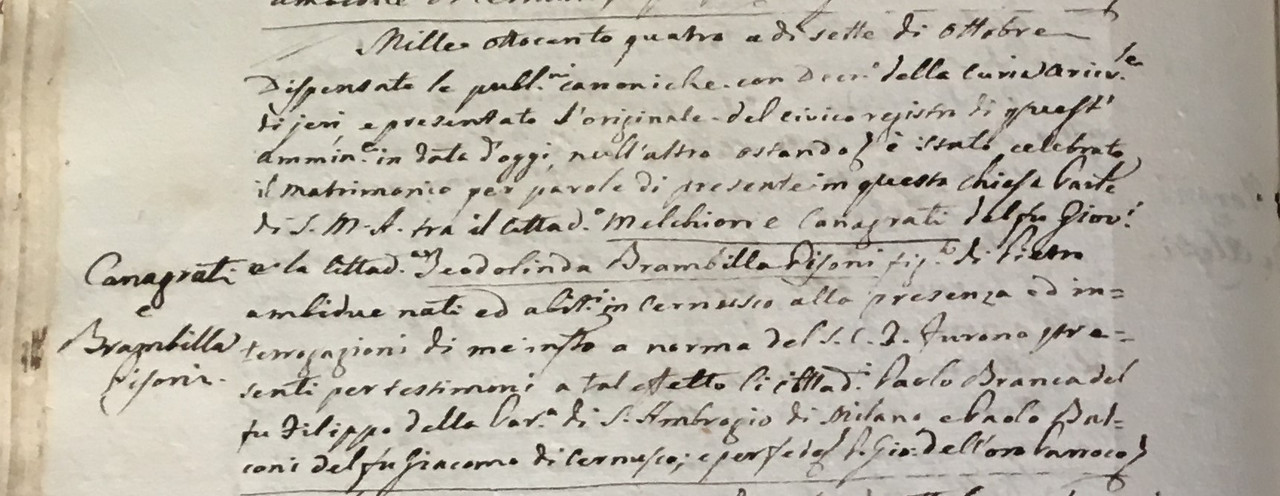 Mille ottocento quatro a di sette di ottobre
Dispensate le publ.ni canoniche con Decr.o della Curia Arciv.le
di jeri, e presentato l'originale del civico registro di quest'
ammin.e in data d'oggi, null'altro ostando è istato celebrato
il matrimonio per parole di presente in questa chiesa Parle
di S. M. A. tra il Cittad.o Melchiorre Canagrati del fu Giov.i
Canagrati e la Cittad.a Teodolinda Brambilla Pisoni fig.a di Pietro
e
ambidue nati ed abit.i in Cernusco alla presenza ed in=
Brambilla terrogazioni di me infto a norma del S. C. D. Furono pre=
Pisoni. senti per testimoni a tal effetto li cittad.i Paolo Branca del
fu Filippo della Par.a di S. Ambrogio di Milano e Paolo Bal=
coni del fu Giacomo di Cernusco; e per fede P. Gio: dell'oro Parroco